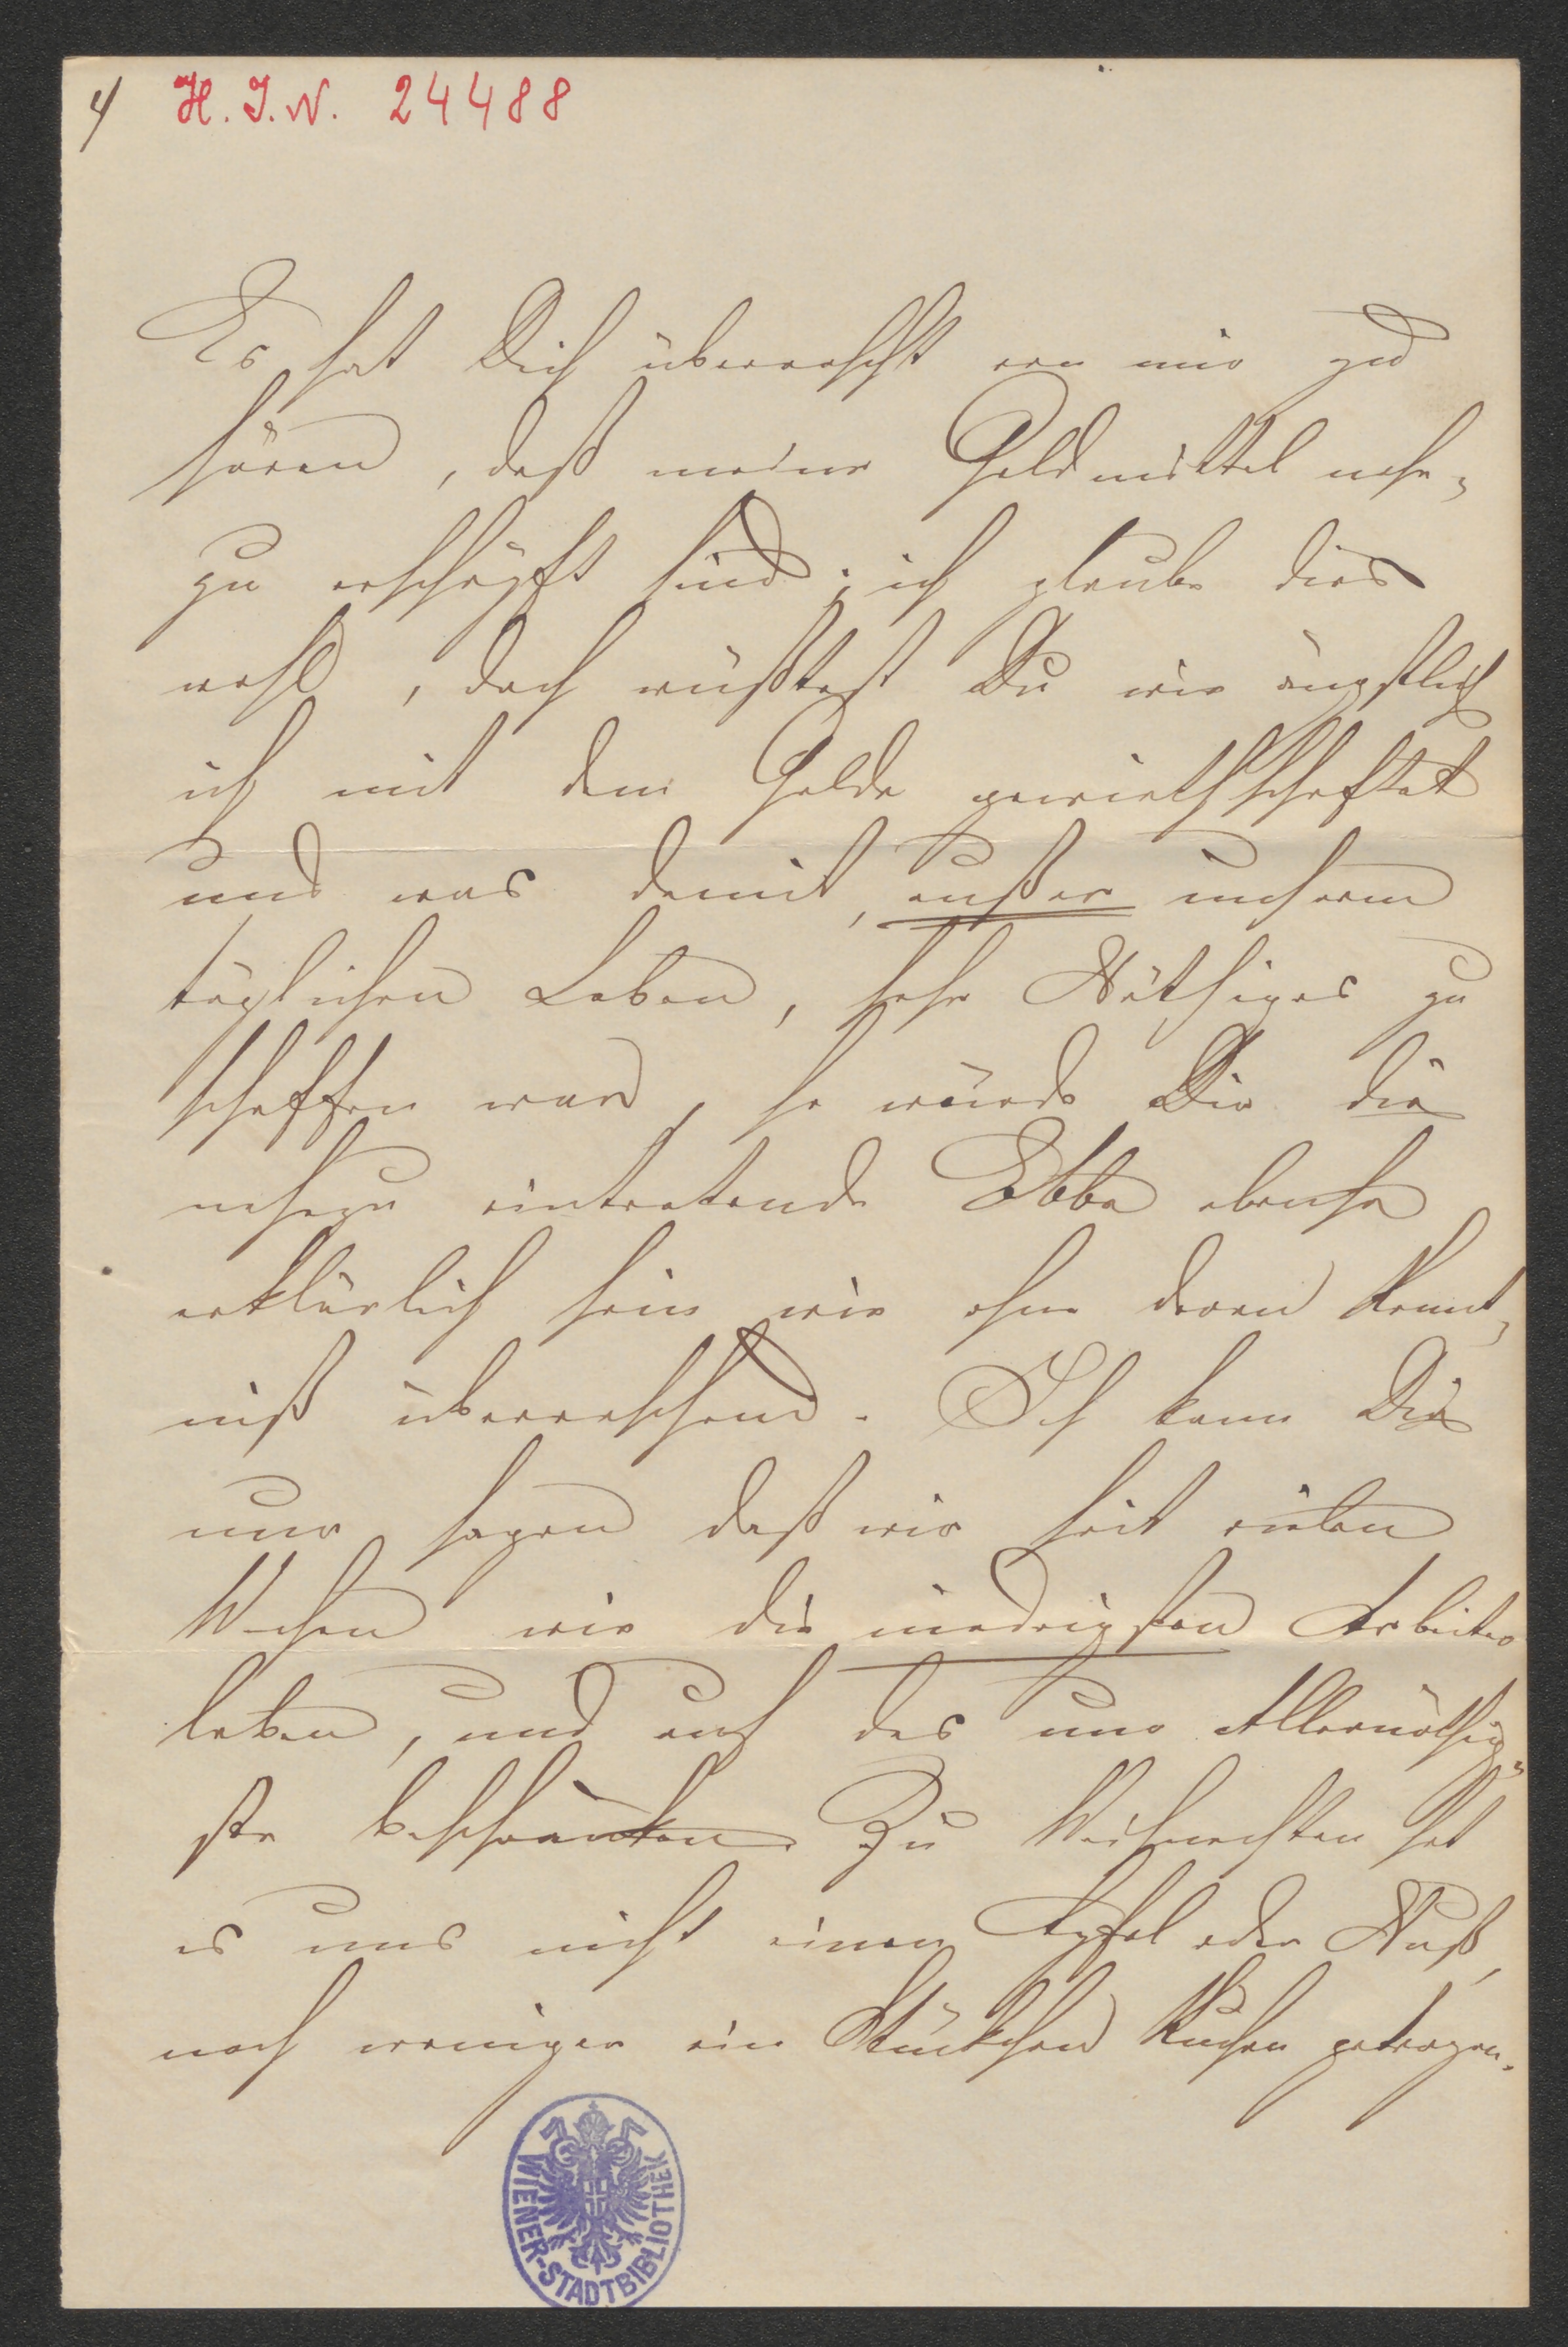 4 H. I. N. 24488
Es hat Dich überrascht von mir zu
hören, daß meine Geldmittel nahe=
zu erschöpft sind; ich glaube dies
wohl, doch wüßtest Du wie ängstlich
ich mit dem Gelde gewirthschaftet
und was damit, außer unserem
täglichen Leben, sehr Nöthiges zu
schaffen war, so würde Dir die
nahezu eintretende Ebbe ebenso
erklärlich sein wie ohne deren Kennt=
niß überraschend. Ich kann Dir
nur sagen daß wir seit vielen
Wochen wie die niedrigsten Arbeiter
leben, und auf das uns Allernöthig=
ste beschränken. Zu Weihnachten hat
es uns nicht einen Apfel oder Nuß,
noch weniger ein Stückchen Kuchen getragen.
WIENER-STADTBIBLIOTHEK